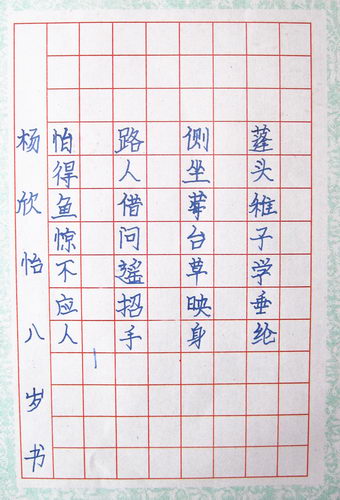 蓬头稚子学垂纶
侧坐台草映身
路人借问遥招手
怕得鱼惊不应人
杨欣怡八岁书